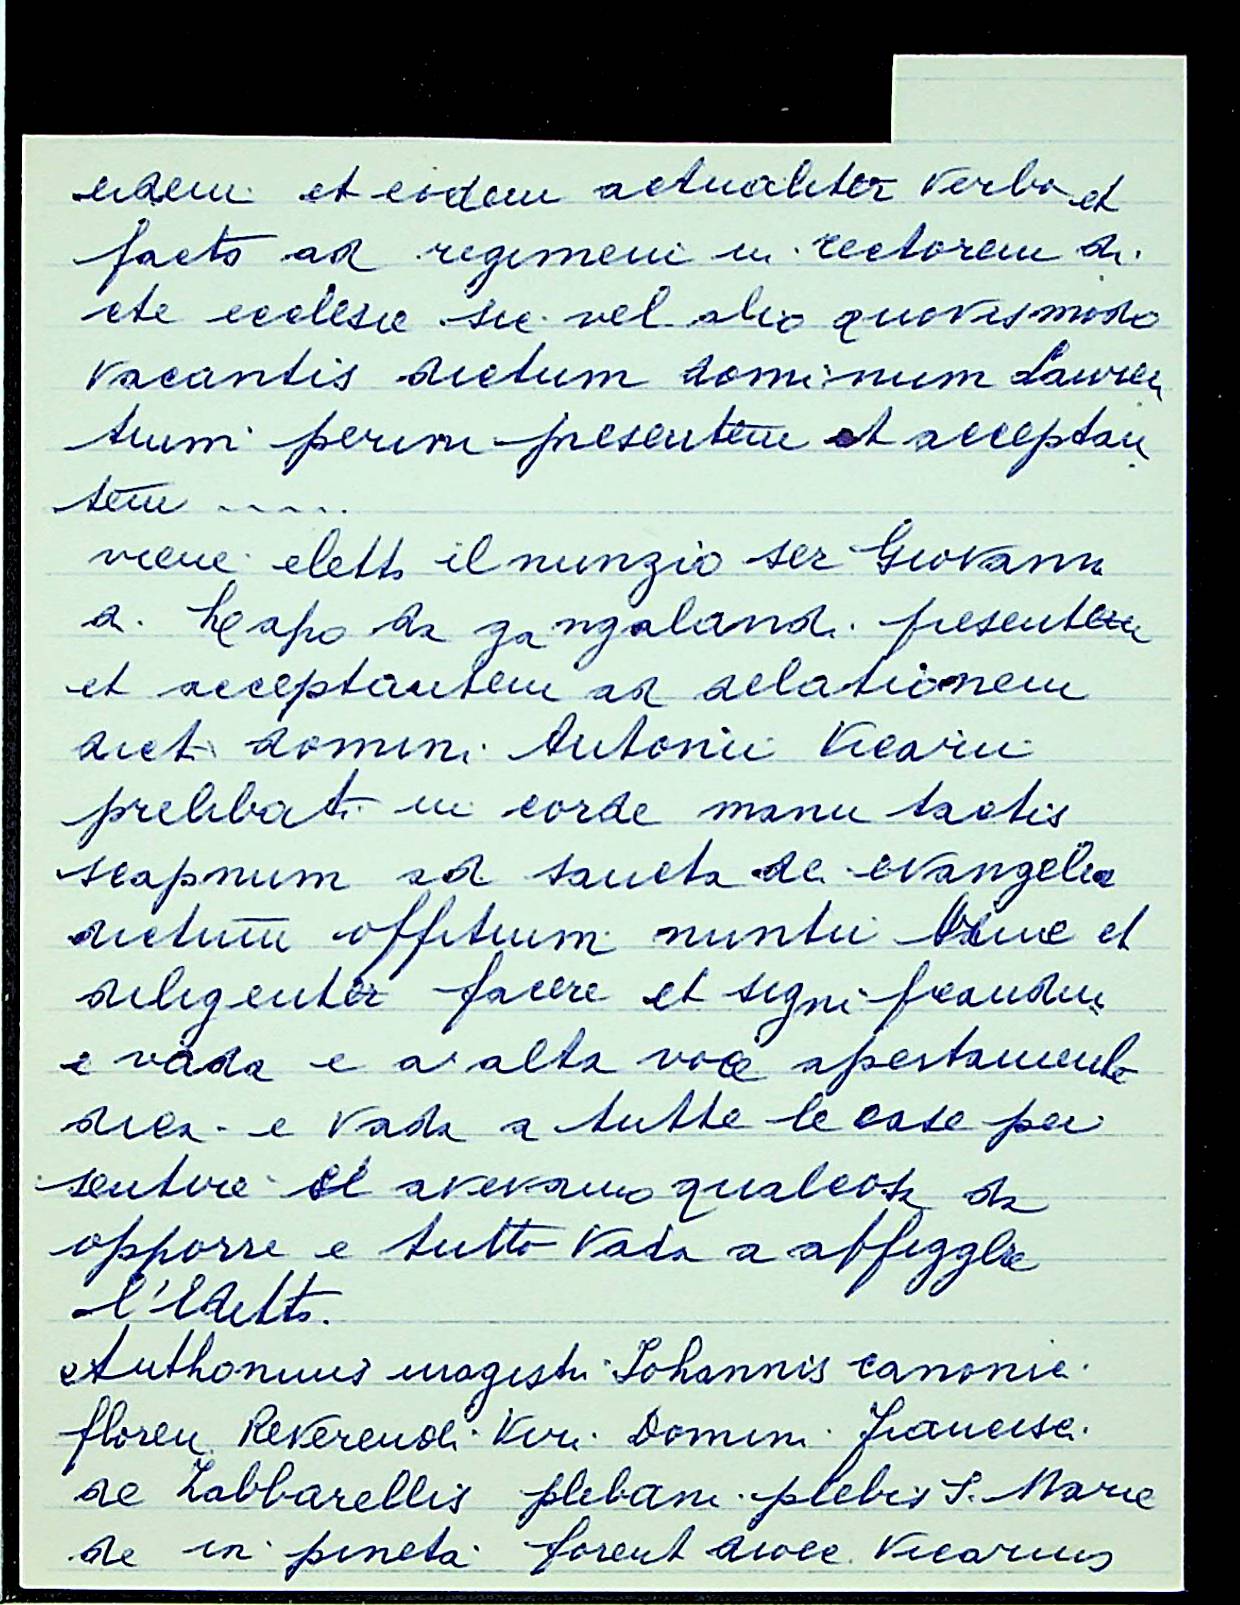 eidem et eodem actualiter verbo et
facto ad regimem in rectorem di
cte ecclesie sic vel alio quovis modo
vacantis dictum dominum Lauren
tium presentem et acceptan
tem .....
viene eletto il nunzio ser Giovanni
di Lapo da gangalandi presentem
et acceptantem ad delationem
dicti domini Antonii Vicarii
prelibati in corde manu tactis
ad sancta dei evangelia
dictum offitium nuntii bene et
diligenter facere et significandum
e vada e a alta voce apertamente
dica e vada a tutte le case per
sentire se avevano qualcosa da
opporre e tutto vada a affiggere
l'Editto.
Anthonius magistri Iohannis canonic
floren Reverendi Viri Domini Francisci
de Zabbarellis plebani plebis S. Marie
de in pineta florent dioec. Vicarius